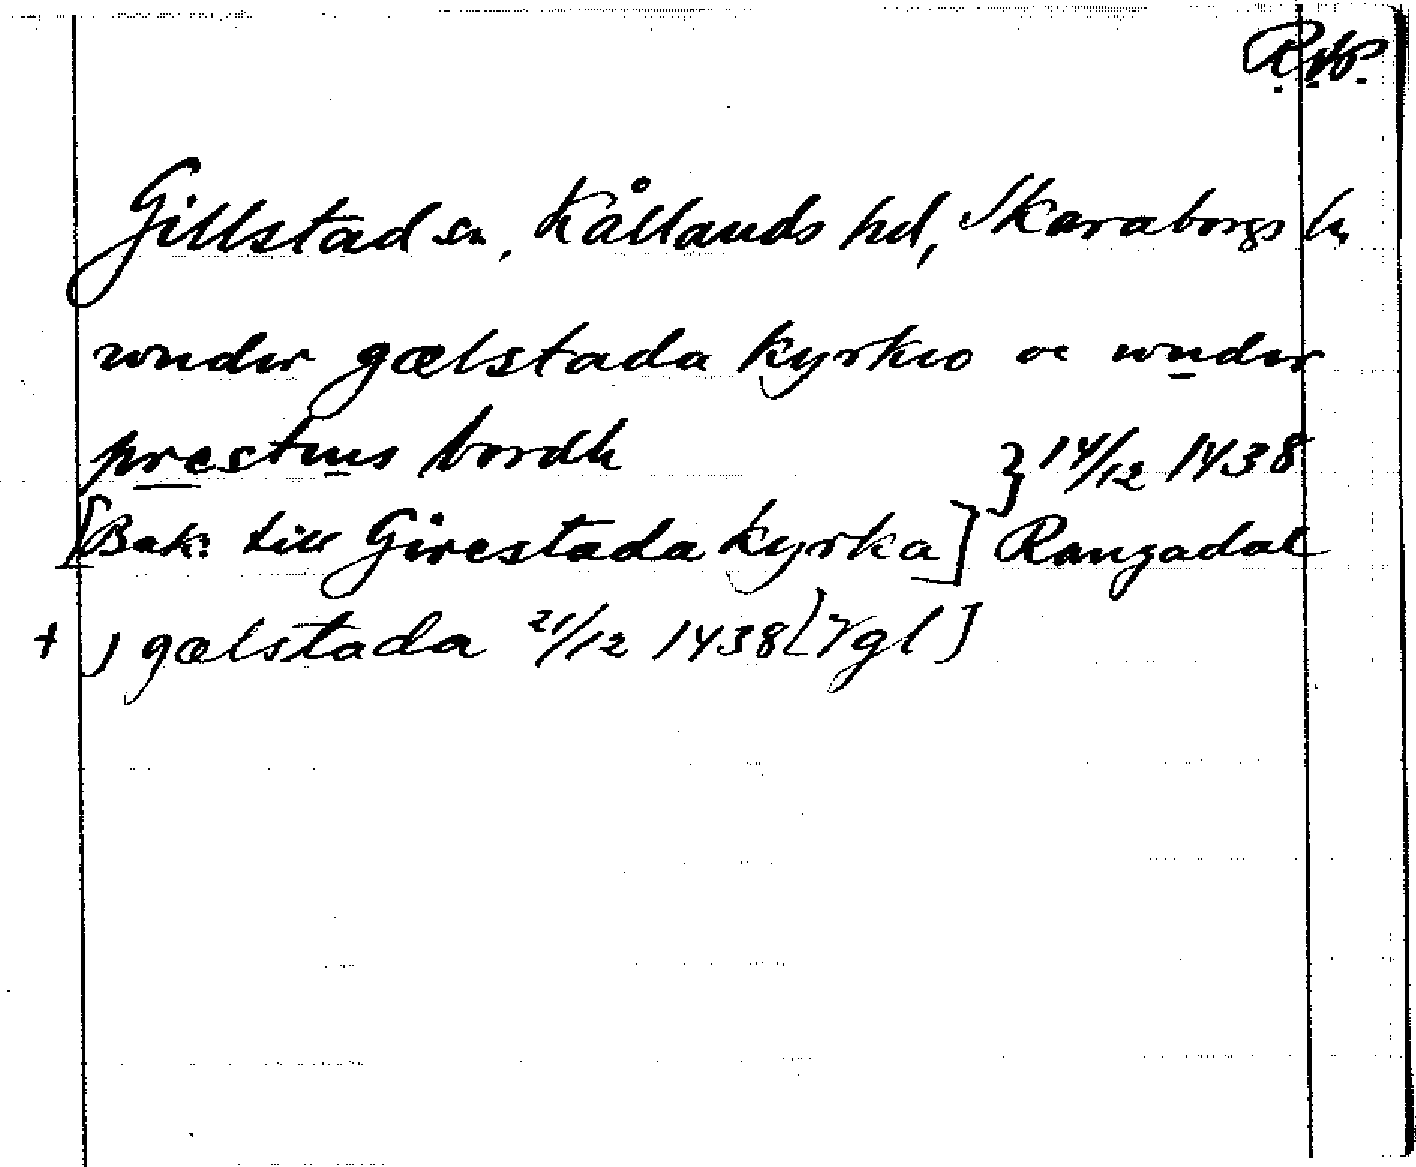 RAp.
Gillstad sn, Kållands hd, Skaraborgs ln
wnder gælstada kyrkio oc wnder
prestens bordh } 14/12 1438
[Bak: till Girestada kyrka] Rangadal
+ ) gælstada 21/12 1438 [Vgl]